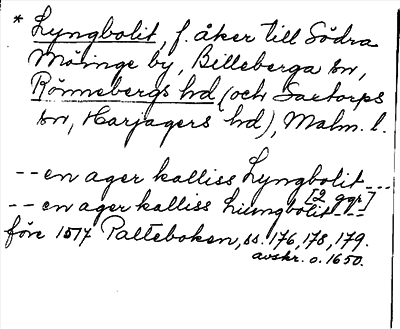 * Lyngbolit, f. åker till Södra
Möinge by, Billeberga sn,
Rönnebergs hd (och Saxtorps
sn, Harjagers hd), Malm. l.
-- en ager kalliss Lyngbolit ---
[2 ggr]
-- en ager kalliss Liungbolit --
före 1517 Palteboken, ss. 176, 178, 179.
avskr. o. 1650.